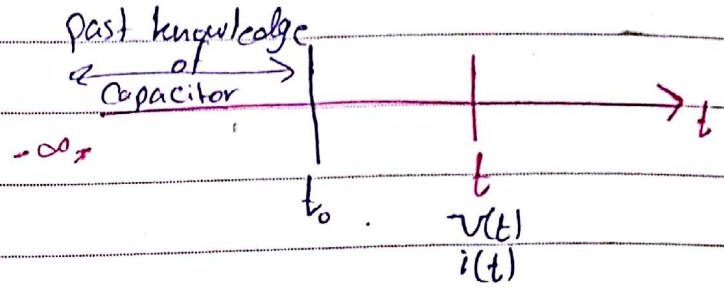 past knowledge
of
Capacitor
t
-∞
t₀
t
v(t)
i(t)